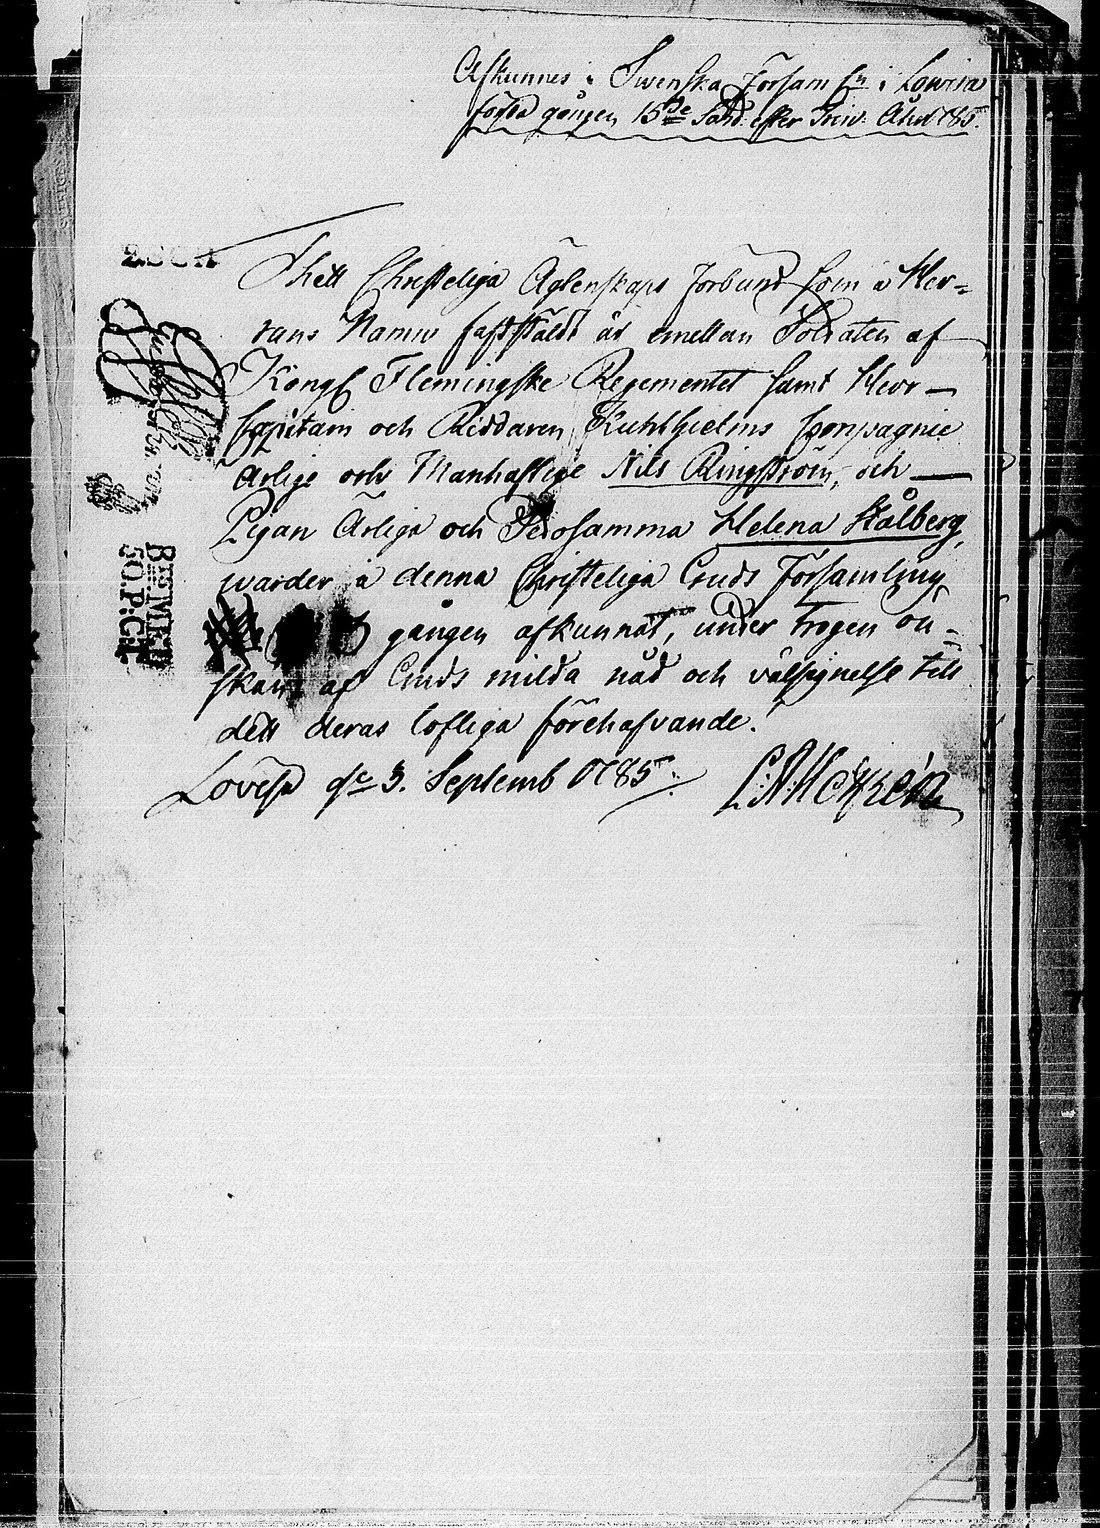 Afkunnes i Swenska Församl:n i Lowisa
första gången 15de Sönd. efter Trin. Åhr 1785.
2 SCH
Thett Christeliga Ägtenskaps Förbund som i Her=
rans Namn fastställdt är emellan Soldaten af
Kongl Flemingske Regementet samt Herr
Capitain och Riddaren Kuhlhielms Compagnie
Ärlige och Manhaftige Nils Ringström, och
Pigan Ärliga och Gudosamma Helena Stålberg,
warder i denna Christeliga Guds Församling
gången afkunnat, under trogen ön=
skan af Guds milda nåd och välsignelse till
dett deras lofliga förehafvande.
Lovisa d: 3. Septemb 1785.